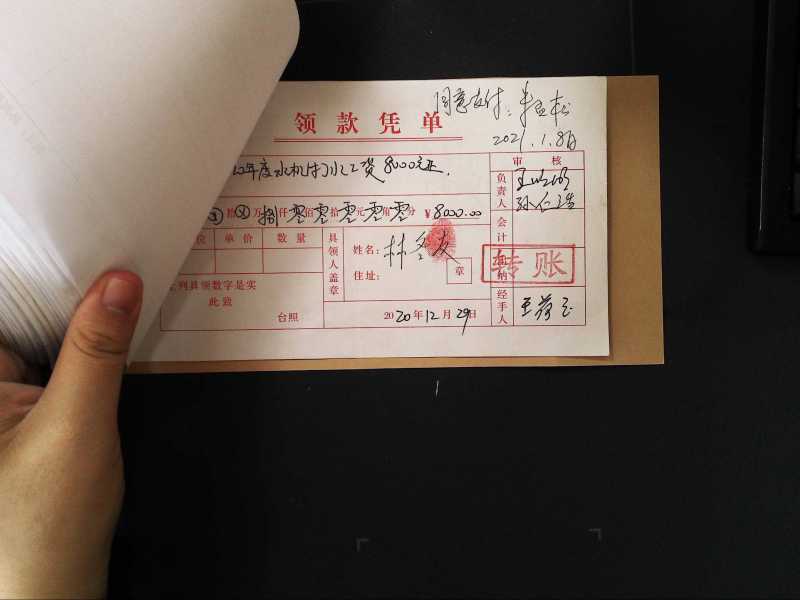 同意支付:
2021.1.8日
领款凭单
审核
年度水机打水工资8000元正.
负责人
拾万捌仟零佰零拾零元零角零分 ¥8000.00
会计
位 单价 数量
具领人盖章
姓名: 林冬友
住址:
章
转账
纳
上列具领数字是实
此致
台照
2020年12月29日
经手人